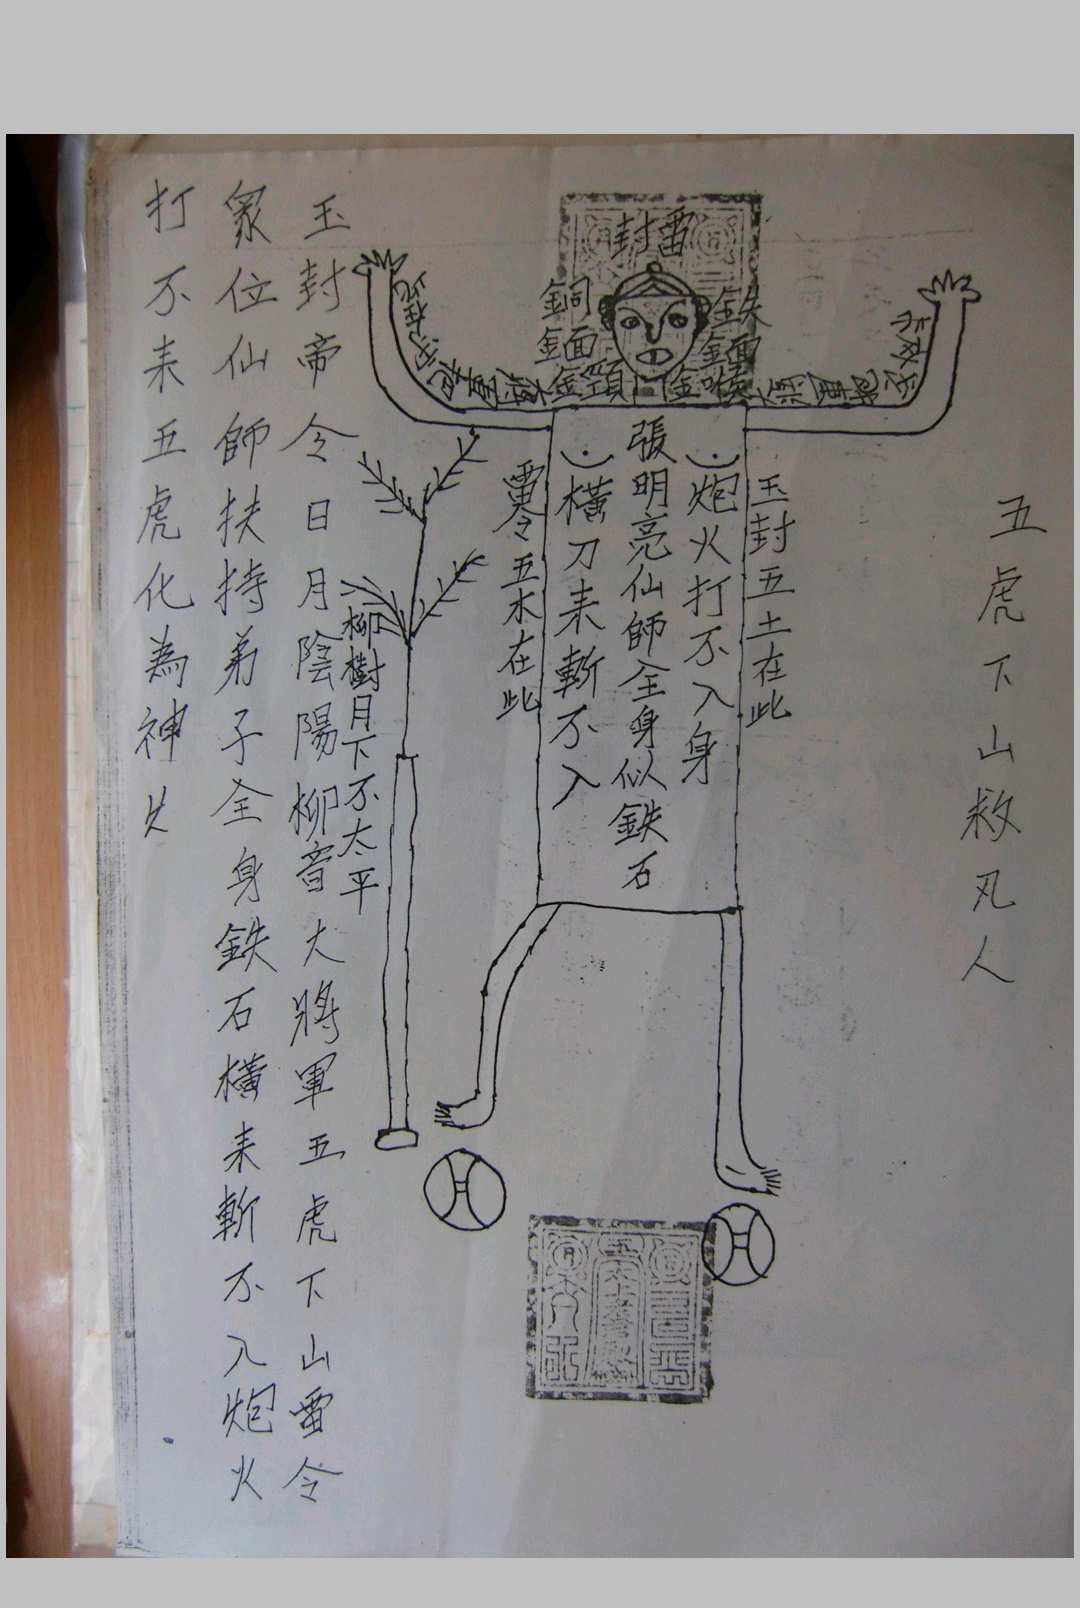 五虎下山救凡人
雷封
鉄
銅
玉封五土在此
炮火打不入身
張明亮仙師全身似鉄石
橫刀耒斬不入
雷令五水在此
柳樹月下不太平
玉封帝令日月陰陽柳音大將軍五虎下山雷令
眾位仙師扶持弟子全身鉄石橫耒斬不入炮火
打不耒五虎化為神